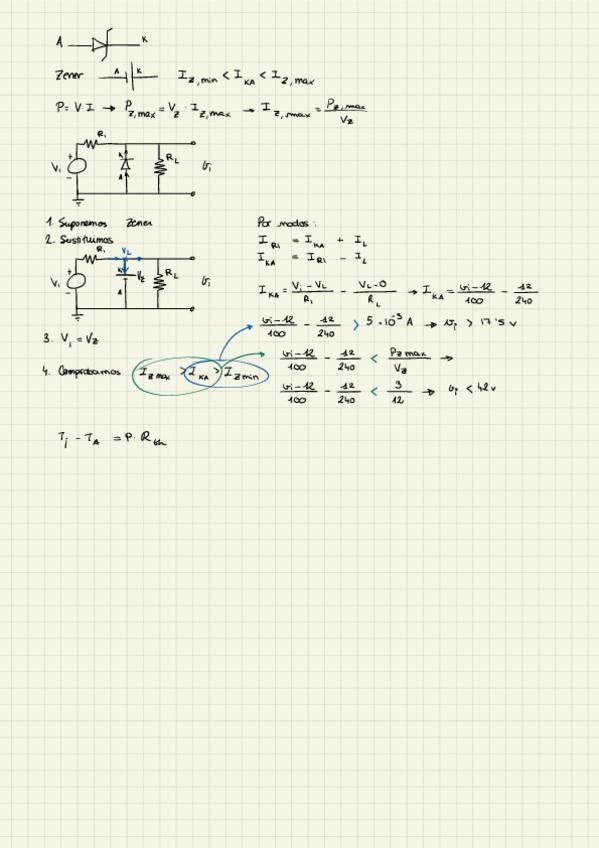 A K
Zener A K I_Z,min < I_KA < I_Z,max
P = V·I → P_Z,max = V_Z · I_Z,max → I_Z,max = P_Z,max / V_Z
R₁
V_i + − K A R_L v_i
1. Suponemos Zener
2. Sustituimos
R₁ V_L
V_i + − K A V_Z R_L v_i
3. V_i = V_Z
4. Comprobamos I_Z max > I_KA > I_Z min
Por nodos:
I_R1 = I_KA + I_L
I_KA = I_R1 − I_L
I_KA = (V_i − V_L) / R₁ − (V_L − 0) / R_L → I_KA = (v_i − 12) / 100 − 12 / 240
(v_i − 12) / 100 − 12 / 240 > 5·10⁻³ A → v_i > 17'5 v
(v_i − 12) / 100 − 12 / 240 < P_Z max / V_Z →
(v_i − 12) / 100 − 12 / 240 < 3 / 12 → v_i < 42 v
T_j − T_A = P · R_th